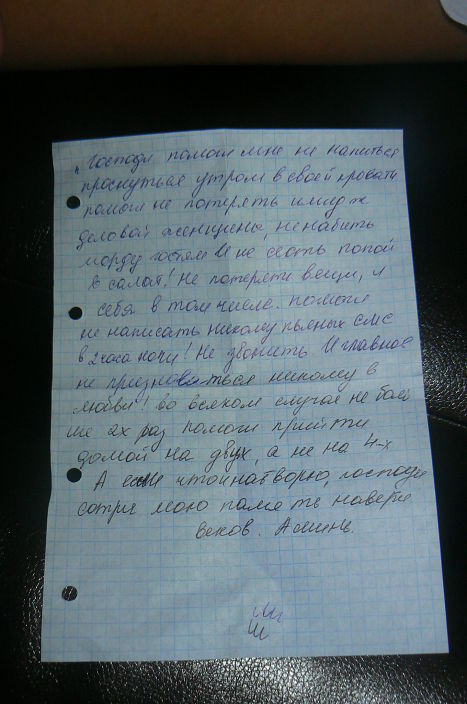 „Господи помоги мне не напиться
проснуться утром в своей кровати
помоги не потерять имидж
деловой женщины, не набить
морду гостям и не сесть попой
в салат! Не потеряти вещи, и
себя в том числе. помоги
не написать никому пьяных смс
в 2 часа ночи! Не звонить И главное
не признаваться никому в
любви! во всяком случае не боль
ше 2х раз помоги прийти
домой на двух, а не на 4-х
А если что и натворю, господи
сотри мою память навеки
веков. Аминь.